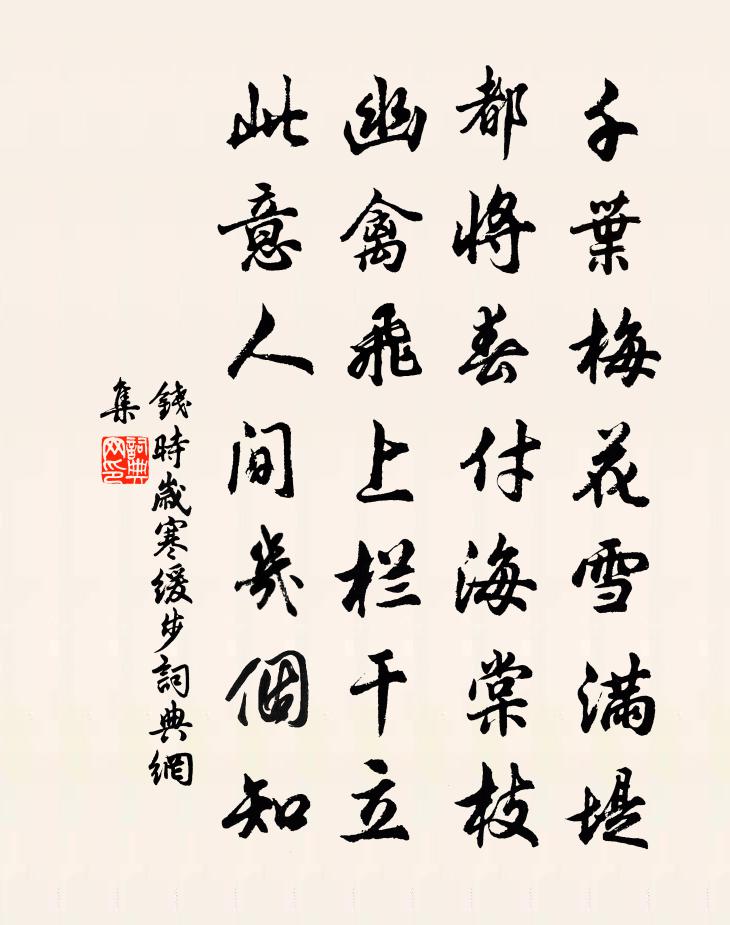 千葉梅花雪滿堤
都將春付海棠枝
幽禽飛上栏干立
此意人间幾個知
錢時歲寒缓步詞典網
集
詞典网印